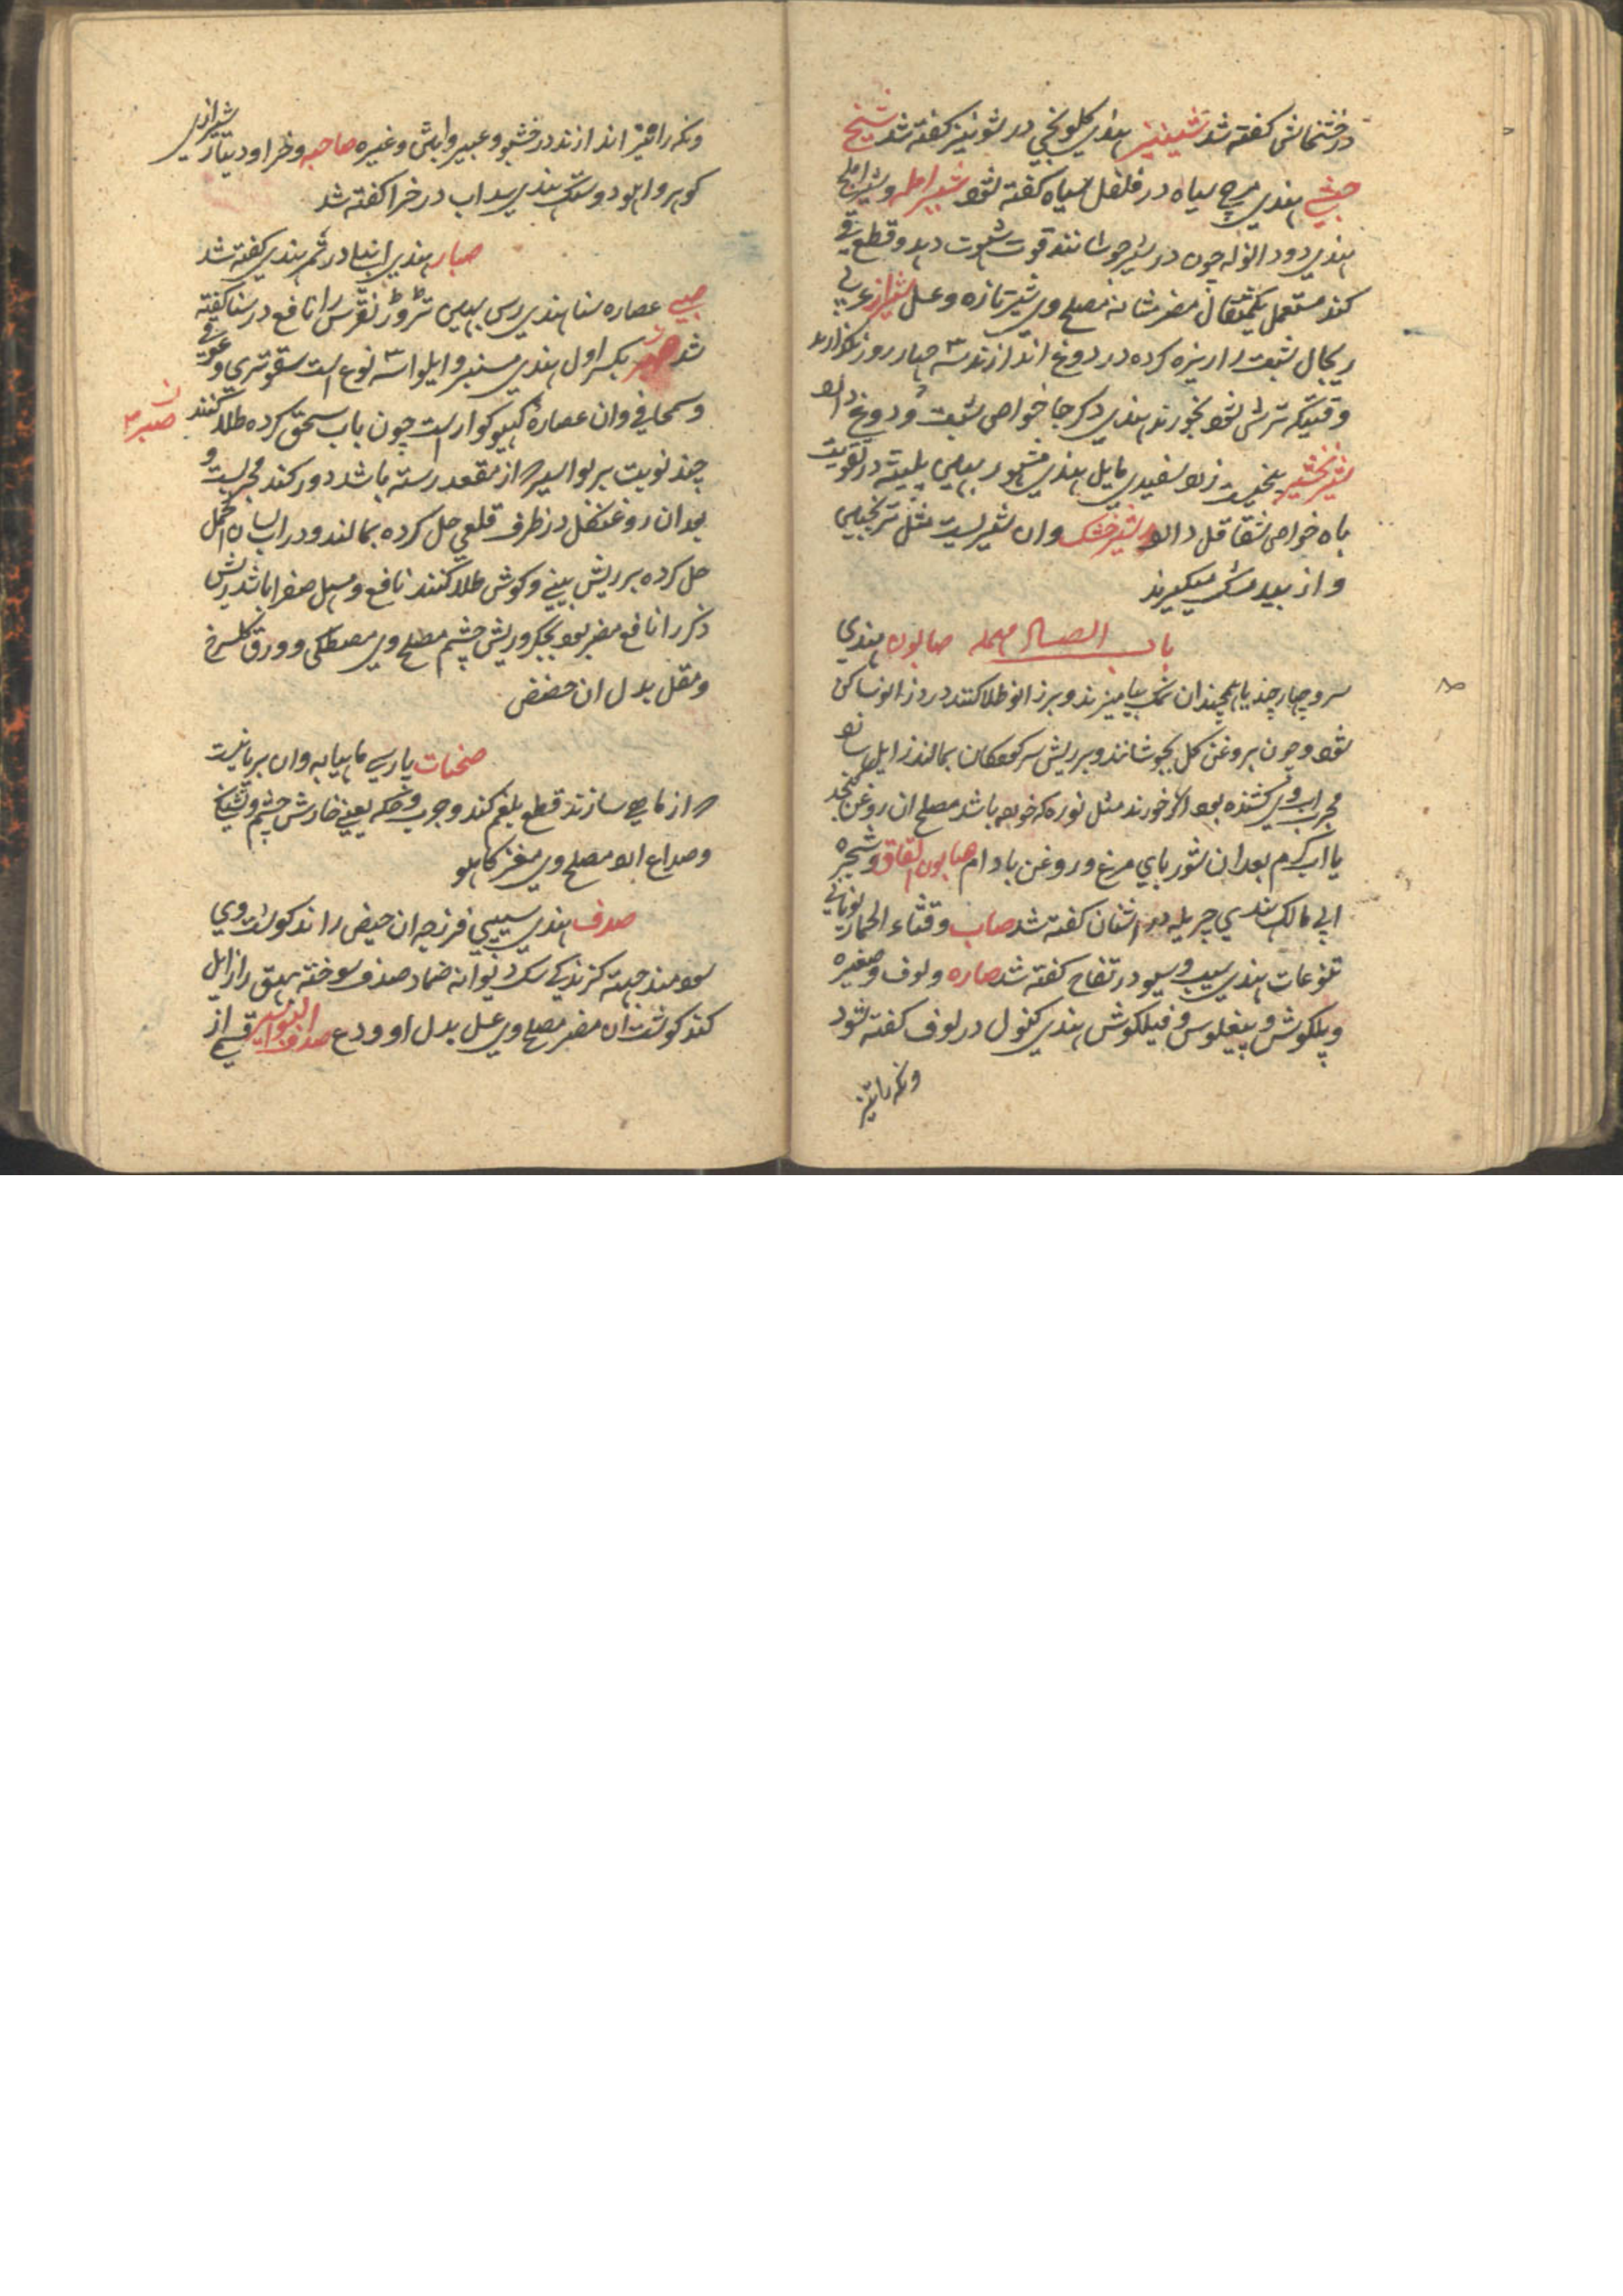 درختمانش کفته شد شینیز هندی کلونجی در شونیز کفته شد شیح
حبشی هندی مرچ سیاه در فلفل سیاه کفته شود شیر املہ و شیر املج
هندی دود انوله چون در شیر جوشانند قوت شهوت دهد و قطع قی
کند مستعمل یکمثقال مضر مثانه مصلح وی شیر تازه و عسل شیراز عربی
ریجال شبت را ریزه کرده در دوغ اندازند سه چهار روز بگذارند
وقتیکه ترش شود بخورند هندی دکرجا خواص شبت و دوغ دارد
شیر بخشیر بیخیست زرد بسفیدی مایل هندی مشهور بهمین پلیته در تقویت
باه خواص شقاقل دارد شیر خشک وان شیریست مثل ترنجبین
و از بید مشک میکیرند
باب الصاد مهمله صابون هندی
سرو چهار چند یا همچندان نمک بیامیزند و بر زانو طلا کنند درد زانو ساکن
شود و چون بروغن کل بجوشانند و بر ریش سر کودکان بمالند زایل سازد
مجرب اب وی کشنده بود اکر خورند مثل نوره که خورده باشد مصلح ان روغن کنجد
یا اب کرم بعد ان شوربای مرغ و روغن بادام صابون القاق و شجره
ابی مالک هندی چریله در اشنان کفته شد صاب و قثاء الحمار یونانی
تلوعات هندی سیب و سیو در تفاح کفته شد صاره و لوف و صغیره
و پلکوش و پیغلوس و فیلکوش هندی کنول در لوف کفته شود
ونکه رانیز
ونکه رانیز اندازند در خشبو و عبیر و ابٹن و غیره صاحبه و خر او دیتار شیرازی
کوبر و ابلود وسنک هندی سداب در خرا کفته شد
صبار هندی انبلی در ثمر هندی کفته شد
صبی عصاره سنا هندی رس بهین تروڑ نقرس را نافع در سنا کفته
شد صبر بکسر اول هندی سنبر و ایلوا سه نوع است سقوتری و عربی
و سمحانی وان عصاره کهیو کوار است چون باب سحق کرده طلا کنند
صبر
چند نوبت بر بواسیر که از مقعد رسته باشد دور کند مجربست و
بعد ان روغن کل در ظرف قلعی حل کرده بمالند و در اب لسان الحمل
حل کرده بر ریش بینی و کوش طلا کنند نافع و مسهل صفرا باشد ریش
ذکر را نافع مضر بود بجکر و ریش چشم مصلح وی مصطکی و ورق کلسرخ
و مقل بدل ان حضض
صحنات پارسی ماهیابه وان بر بانیست
که از ماهی سازند قطع بلغم کند و جرب و حکه یعنی خارش چشم و تشنکی
و صداع ارد مصلح وی مغز کاهو
صدف هندی سیپی فرزجه ان حیض را ند کوشت وی
سودمند جهت کزندکی سک دیوانه ضماد صدف سوخته بهق را زایل
کند کوشت ان مضر مصلح وی عسل بدل او ودع صدف البواسیر قسمی از